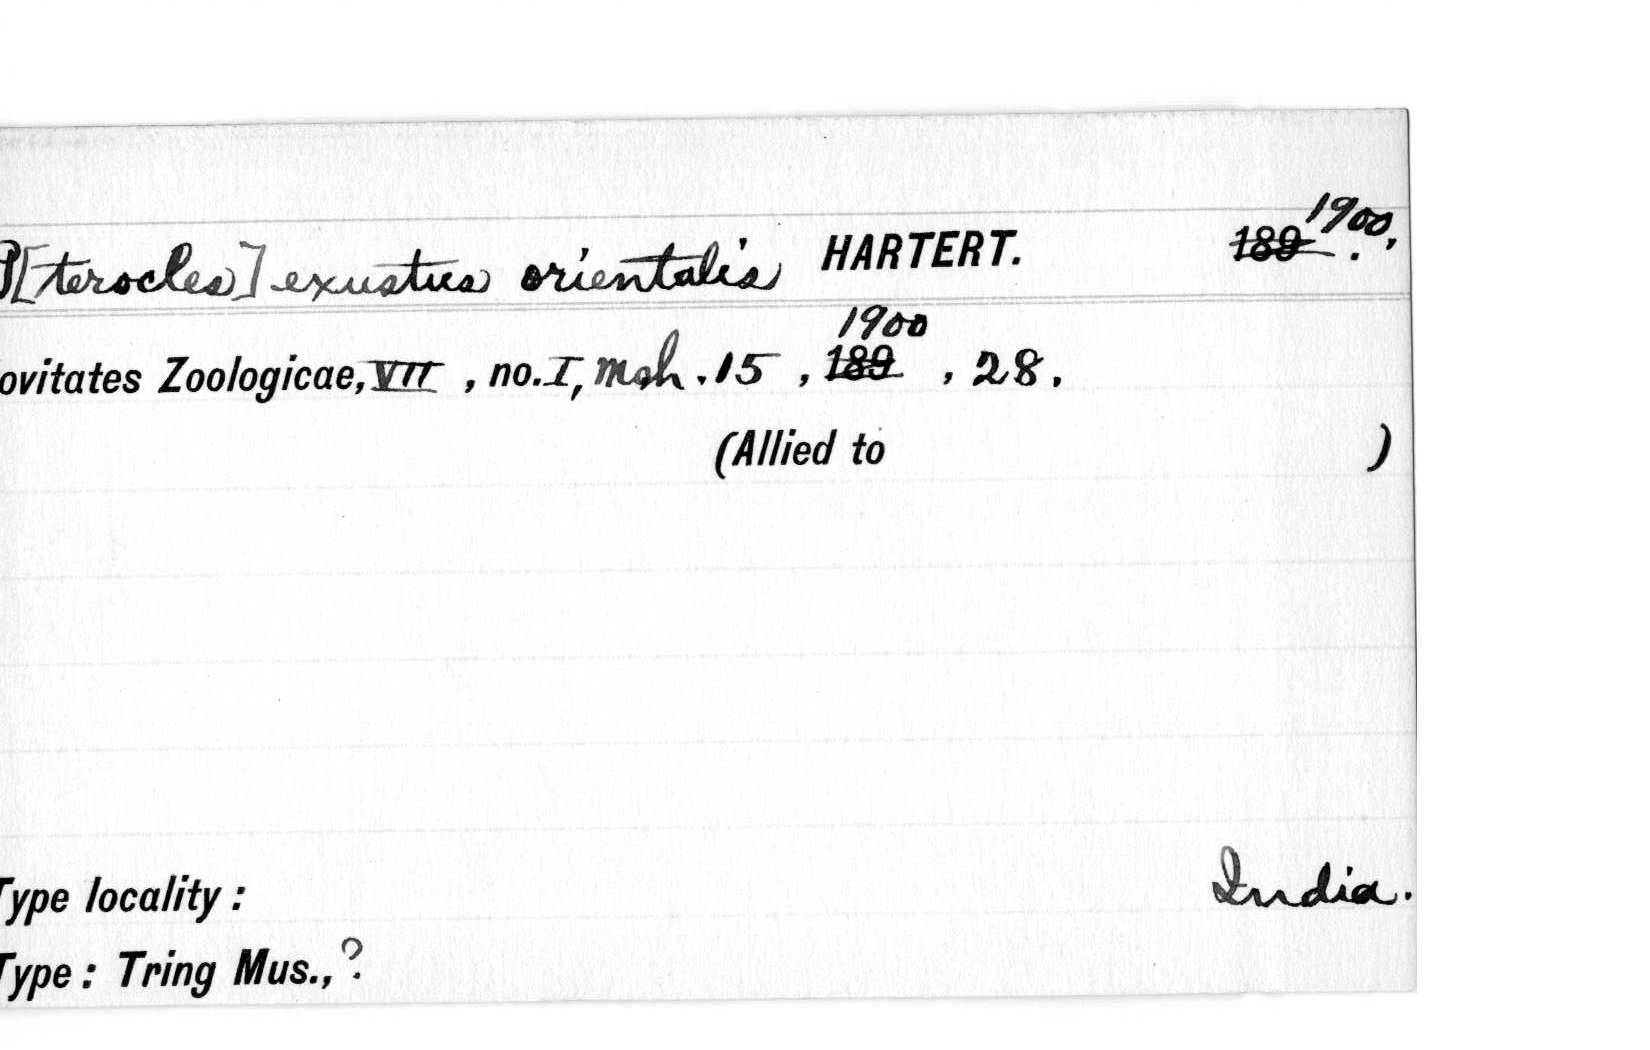 P[terocles] exustus orientalis HARTERT. 189 1900.
ovitates Zoologicae, VII, no. I, mch. 15, 189 1900, 28.
(Allied to )
Type locality: India.
Type: Tring Mus., ?